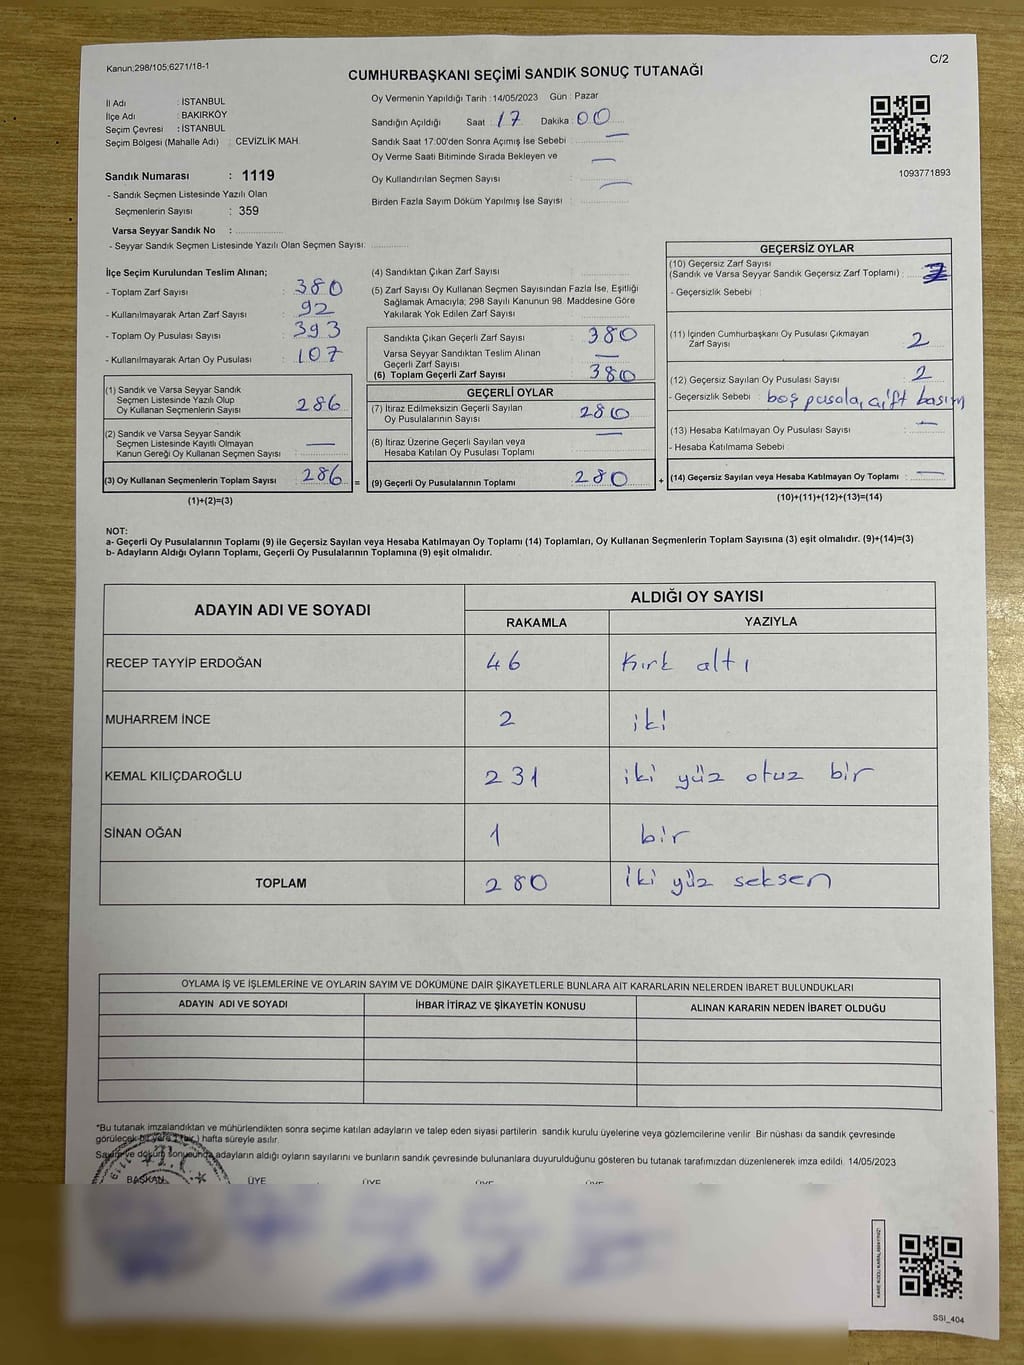 Kanun;298/105;6271/18-1
C/2
CUMHURBAŞKANI SEÇİMİ SANDIK SONUÇ TUTANAĞI
İl Adı : İSTANBUL
İlçe Adı : BAKIRKÖY
Seçim Çevresi : İSTANBUL
Seçim Bölgesi (Mahalle Adı) : CEVİZLİK MAH.
Sandık Numarası : 1119
- Sandık Seçmen Listesinde Yazılı Olan
Seçmenlerin Sayısı : 359
Varsa Seyyar Sandık No :
- Seyyar Sandık Seçmen Listesinde Yazılı Olan Seçmen Sayısı:
Oy Vermenin Yapıldığı Tarih : 14/05/2023 Gün : Pazar
Sandığın Açıldığı Saat : 17 Dakika : 00
Sandık Saat 17:00'den Sonra Açımış İse Sebebi : —
Oy Verme Saati Bitiminde Sırada Bekleyen ve —
Oy Kullandırılan Seçmen Sayısı : —
Birden Fazla Sayım Döküm Yapılmış İse Sayısı :
1093771893
İlçe Seçim Kurulundan Teslim Alınan;
- Toplam Zarf Sayısı : 380
- Kullanılmayarak Artan Zarf Sayısı : 92
- Toplam Oy Pusulası Sayısı : 393
- Kullanılmayarak Artan Oy Pusulası : 107
(1) Sandık ve Varsa Seyyar Sandık
Seçmen Listesinde Yazılı Olup
Oy Kullanan Seçmenlerin Sayısı : 286
(2) Sandık ve Varsa Seyyar Sandık
Seçmen Listesinde Kayıtlı Olmayan
Kanun Gereği Oy Kullanan Seçmen Sayısı : —
(3) Oy Kullanan Seçmenlerin Toplam Sayısı : 286
(1)+(2)=(3)
(4) Sandıktan Çıkan Zarf Sayısı
(5) Zarf Sayısı Oy Kullanan Seçmen Sayısından Fazla İse, Eşitliği
Sağlamak Amacıyla; 298 Sayılı Kanunun 98. Maddesine Göre
Yakılarak Yok Edilen Zarf Sayısı :
Sandıkta Çıkan Geçerli Zarf Sayısı : 380
Varsa Seyyar Sandıktan Teslim Alınan
Geçerli Zarf Sayısı : —
(6) Toplam Geçerli Zarf Sayısı : 380
GEÇERLİ OYLAR
(7) İtiraz Edilmeksizin Geçerli Sayılan
Oy Pusulalarının Sayısı : 280
(8) İtiraz Üzerine Geçerli Sayılan veya
Hesaba Katılan Oy Pusulası Toplamı : —
= (9) Geçerli Oy Pusulalarının Toplamı : 280 +
GEÇERSİZ OYLAR
(10) Geçersiz Zarf Sayısı
(Sandık ve Varsa Seyyar Sandık Geçersiz Zarf Toplamı) :
- Geçersizlik Sebebi :
(11) İçinden Cumhurbaşkanı Oy Pusulası Çıkmayan
Zarf Sayısı : 2
(12) Geçersiz Sayılan Oy Pusulası Sayısı : 2
- Geçersizlik Sebebi : boş pusala, çift basım
(13) Hesaba Katılmayan Oy Pusulası Sayısı : —
- Hesaba Katılmama Sebebi :
(14) Geçersiz Sayılan veya Hesaba Katılmayan Oy Toplamı : —
(10)+(11)+(12)+(13)=(14)
NOT:
a- Geçerli Oy Pusulalarının Toplamı (9) ile Geçersiz Sayılan veya Hesaba Katılmayan Oy Toplamı (14) Toplamları, Oy Kullanan Seçmenlerin Toplam Sayısına (3) eşit olmalıdır. (9)+(14)=(3)
b- Adayların Aldığı Oyların Toplamı, Geçerli Oy Pusulalarının Toplamına (9) eşit olmalıdır.
ADAYIN ADI VE SOYADI
ALDIĞI OY SAYISI
RAKAMLA YAZIYLA
RECEP TAYYİP ERDOĞAN 46 kırk altı
MUHARREM İNCE 2 iki
KEMAL KILIÇDAROĞLU 231 iki yüz otuz bir
SİNAN OĞAN 1 bir
TOPLAM 280 iki yüz seksen
OYLAMA İŞ VE İŞLEMLERİNE VE OYLARIN SAYIM VE DÖKÜMÜNE DAİR ŞİKAYETLERLE BUNLARA AİT KARARLARIN NELERDEN İBARET BULUNDUKLARI
ADAYIN ADI VE SOYADI İHBAR İTİRAZ VE ŞİKAYETİN KONUSU ALINAN KARARIN NEDEN İBARET OLDUĞU
*Bu tutanak imzalandıktan ve mühürlendikten sonra seçime katılan adayların ve talep eden siyasi partilerin sandık kurulu üyelerine veya gözlemcilerine verilir. Bir nüshası da sandık çevresinde
görülecek bir yere 1 (bir) hafta süreyle asılır.
Sayım ve döküm sonucunda adayların aldığı oyların sayılarını ve bunların sandık çevresinde bulunanlara duyurulduğunu gösteren bu tutanak tarafımızdan düzenlenerek imza edildi. 14/05/2023
BAŞKAN ÜYE ÜYE ÜYE ÜYE
1119
SSI_404